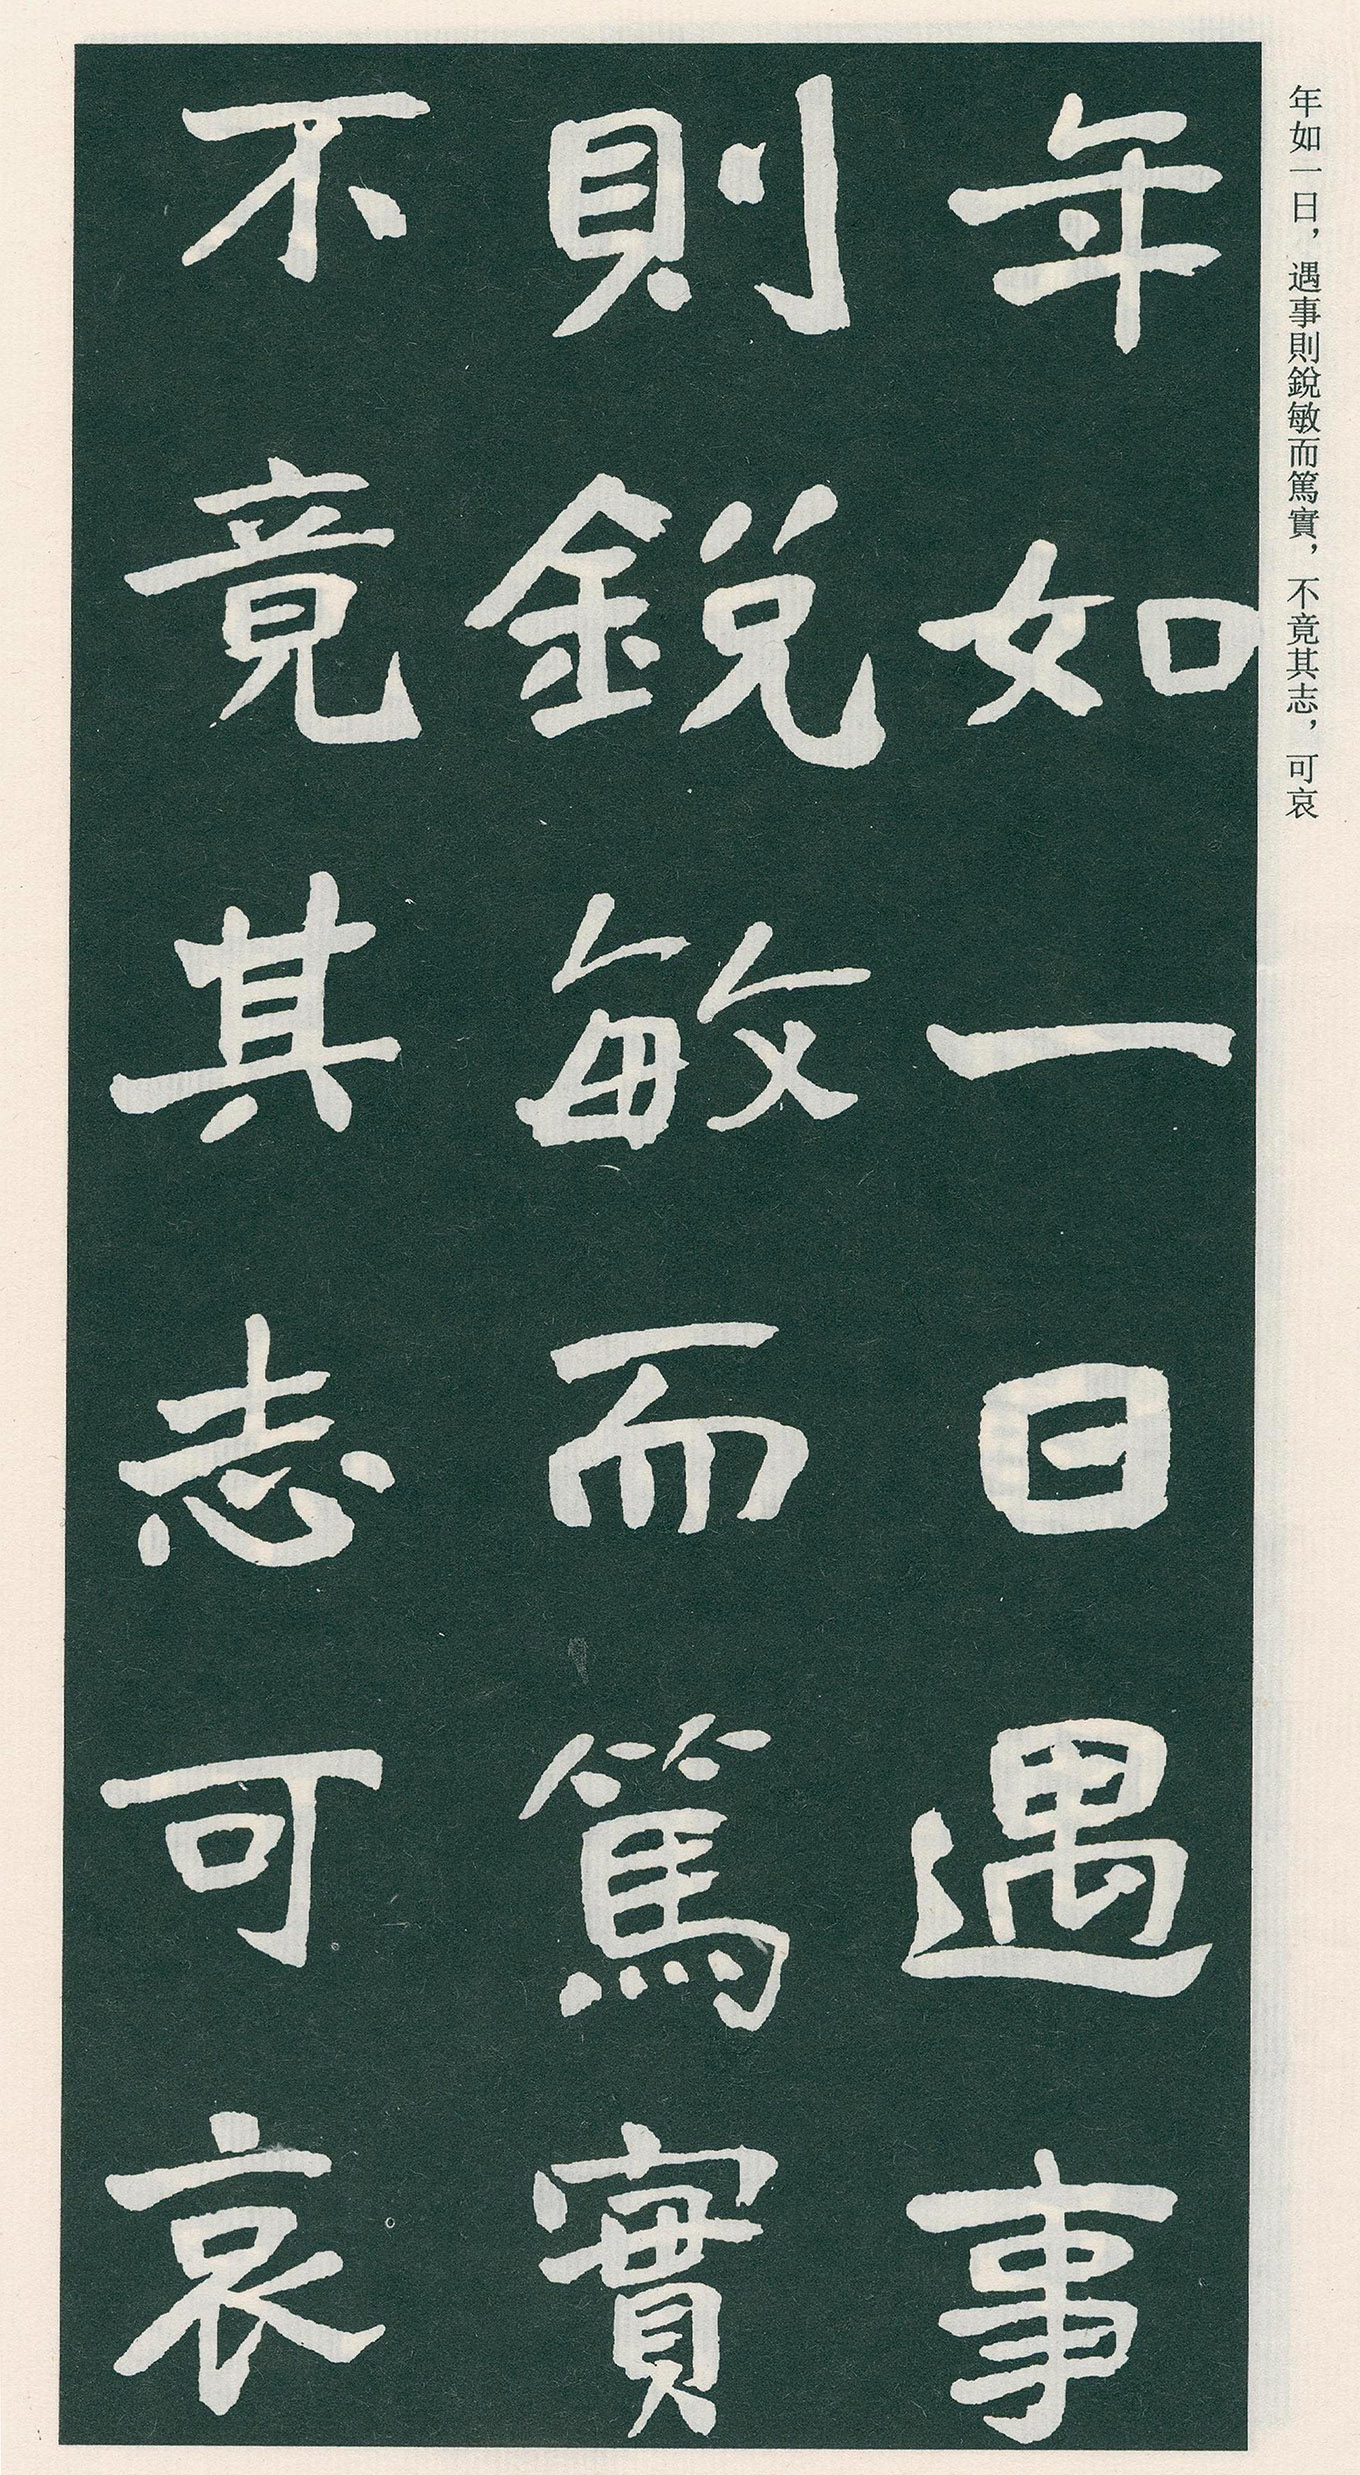 年如一日，遇事則銳敏而篤實，不竟其志，可哀
年如一日遇事
則銳敏而篤實
不竟其志可哀